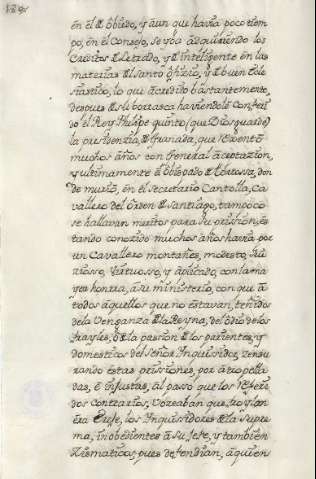 en èl Obispo, y àun que havia poco tiem
po, èn èl Consejo, se yba àdquiriendo los
Creditos de Letrado, y de inteligente èn las
materias del Santo òficio, y de buen Ecle
siastico, lo qui àcredito bastantemente,
despues de su borrasca haviendole Conferi
do èl Rey Phelipe quinto (que Dios guarde)
la presidenzia, de Granada, que
muchos años con General àceptazion,
y ultimamente èl Obispado de
de murio, èn èl Secretario Cantolla, Ca
vallero del òrden de Santiago, tampoco
se hallavan meritos para su prission, ès
tando conozido muchos años havia por
un Cavallero montañes, modesto,
virtuosso, y àplicado, con la ma
yor honrra, à su ministerio, con que à
todos àquellos que no èstavan, teñidos
de la Venganza de la Reyna, del òdio de los
frayles, ò de la pasion de los parientes, y
domesticos del Señor Ynquisidor, zensu
rando èstas prissiones, por àtropella
das, è Ynjustas, àl paso que los
dos Contrarios, Vozeaban que
los Ynquisidores de la supre
ma, inobedientes à su Jefe, y tambien
Zismaticos, pues defendian, à quien